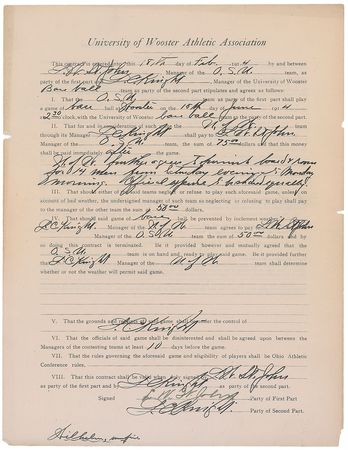 University of Wooster Athletic Association
This contract is entered into this 18th day of Feb. 1914 by and between
L. W. St. John Manager of the O. S. U. team, as
party of the first part and L C Knight, Manager of the University of Wooster
Base ball team as party of the second part stipulates and agrees as follows:
I. That the O. S. U. team as the party of the first part shall play
a game of base ball at Wooster on the day of June 1914
2:30 o'clock, with the University of Wooster base ball team as party of the second part.
II. That for and in consideration of such
through its Manager L C Knight shall pay to L. W. St. John
Manager of the O. S. U. team, the sum of 75.00 dollars. This money shall
be paid immediately after game.
U. of W. further agrees to furnish board & room
for 14 men from Sunday evening to Monday
morning. Official expense to be divided equally.
III. That should either of said teams refuse or neglect to play such aforesaid game, unless on
account of bad weather, the undersigned manager of such team so neglecting or refusing to play shall pay
to the manager of the other team the sum of 50.00 dollars.
IV. That should said game of be prevented by inclement weather
L C Knight Manager of the U. of W. team agrees to pay L. W. St. John
Manager of the O. S. U. team, the sum of 50.00 dollars and by
so doing this contract is terminated. Be it provided however and mutually agreed that the
O. S. U. team is on hand and ready to play said game. Be it further provided
L C Knight Manager of the U. of W. team shall determine
whether or not the weather will permit said game.
V. That the grounds shall be under the control of
L. C. Knight
VI. That the officials of said game shall be disinterested and shall be agreed upon between the
Managers of the contesting teams at least 10 days before the game.
VII. That the rules governing the aforesaid game and eligibility of players shall be Ohio Athletic
Conference rules.
VIII. That this contract shall be valid when duly signed by L. W. St. John
as party of the first part and by L C Knight, as party of the second part.
Signed L. W. St. John Party of First Part
L C Knight Party of Second Part.